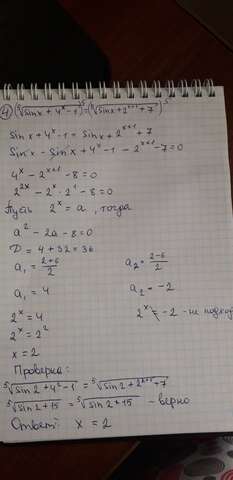 4) (⁵√(sin x + 4ˣ - 1))⁵ = (⁵√(sin x + 2ˣ⁺¹ + 7))⁵
sin x + 4ˣ - 1 = sin x + 2ˣ⁺¹ + 7
sin x - sin x + 4ˣ - 1 - 2ˣ⁺¹ - 7 = 0
4ˣ - 2ˣ⁺¹ - 8 = 0
2²ˣ - 2ˣ · 2¹ - 8 = 0
Пусть 2ˣ = a, тогда
a² - 2a - 8 = 0
D = 4 + 32 = 36
a₁ = (2+6)/2 a₂ = (2-6)/2
a₁ = 4 a₂ = -2
2ˣ = 4 2ˣ = -2 - не подход
2ˣ = 2²
x = 2
Проверка:
⁵√(sin 2 + 4² - 1) = ⁵√(sin 2 + 2²⁺¹ + 7)
⁵√(sin 2 + 15) = ⁵√(sin 2 + 15) - верно
Ответ: x = 2